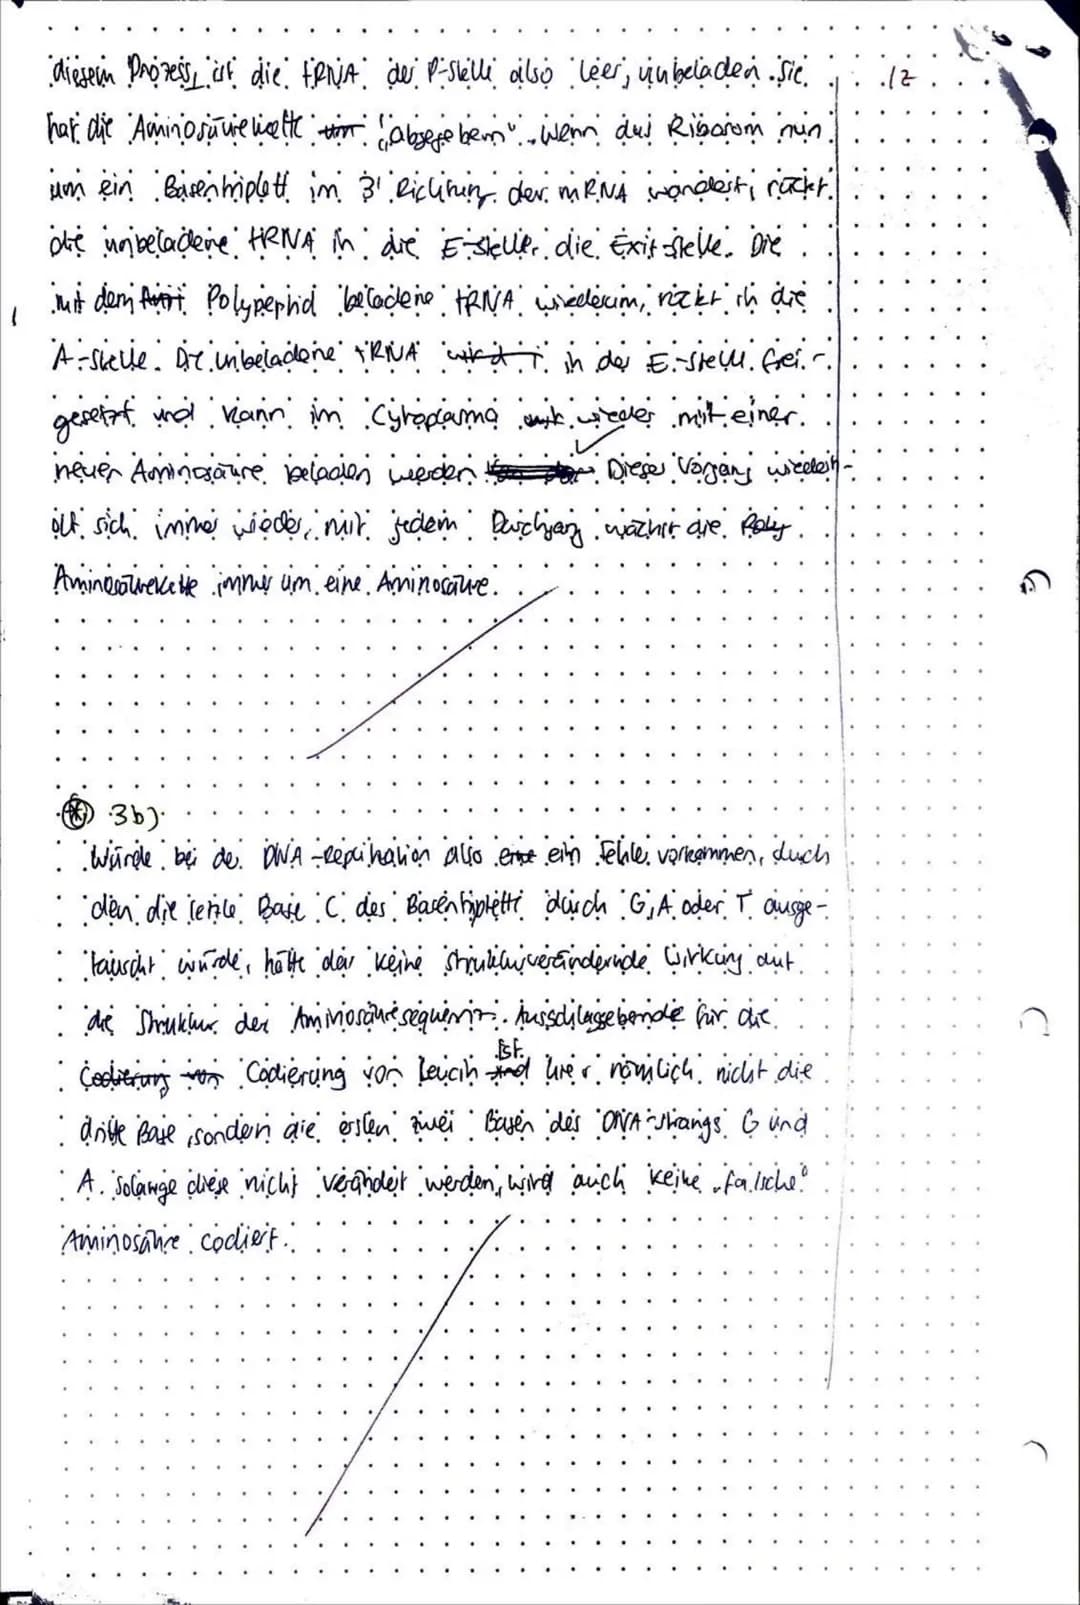 diesem Prozess, ist die tRNA der P-Stelle also leer, unbeladen. Sie
hat die Aminosäurekette „abgegeben". Wenn das Ribosom nun
um ein Basentriplett im 3' Richtung der mRNA wandert, rückt
die unbeladene tRNA in die E-Stelle, die Exit-Stelle. Die
mit dem Polypeptid beladene tRNA wiederum, rückt in die
A-Stelle. Die unbeladene tRNA wird in der E-Stelle frei-
gesetzt und kann im Cytoplasma wieder mit einer
neuen Aminosäure beladen werden. Dieser Vorgang wiederh-
olt sich immer wieder, mit jedem Durchgang wächst die Poly
Aminosäurekette immer um eine Aminosäure.
12
1
3b)
Würde bei der DNA-Replikation also eine ein Fehler vorkommen, durch
den die letzte Base C des Basentripletts durch G, A oder T ausge-
tauscht würde, hätte der keine strukturverändernde Wirkung auf
die Struktur der Aminosäuresequenz. Ausschlaggebende für die
Codierung von Codierung von Leucin ist hier nämlich nicht die
dritte Base, sondern die ersten zwei Basen des DNA-Strangs G und
A. Solange diese nicht verändert werden, wird auch keine „falsche"
Aminosäure codiert.